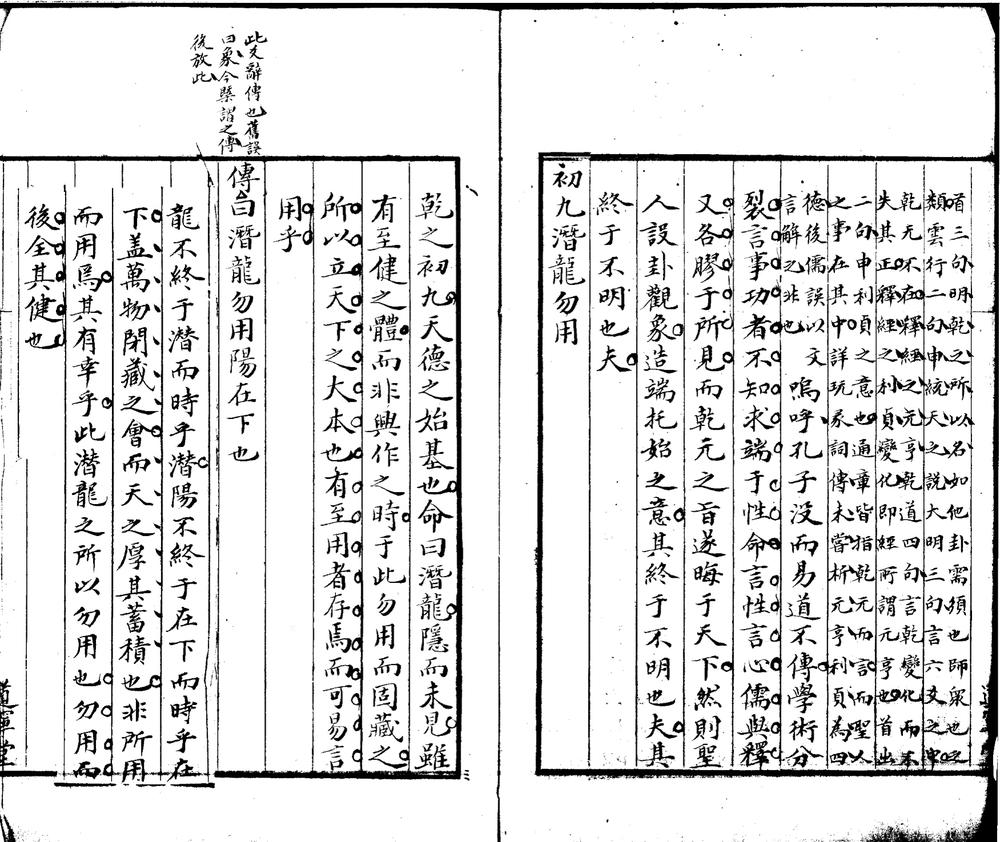 首三句明乾之所以名如他卦需須也師衆也之
類雲行二句申統天之說大明三句言六爻之中
乾元不在釋經之元亨乾道四句言乾變化而未
失其正釋經之利貞變化即經所謂元亨也首出
二句申利貞之意也通章皆指乾元而言而聖人
之事在其中詳玩彖詞傳未嘗析元亨利貞為四
德後儒誤以文
言解之非也
嗚呼孔子没而易道不傳學術分
裂言事功者不知求端于性命言性言心儒與釋
又各膠于所見而乾元之旨遂晦于天下然則聖
人設卦觀象造端托始之意其終于不明也夫其
終于不明也夫
初九潛龍勿用
乾之初九天德之始基也命曰潛龍隱而未見雖
有至健之體而非興作之時于此勿用而固藏之
所以立天下之大本也有至用者存焉而可易言
用乎
此爻辭傳也舊誤
曰象今槩謂之傳
後放此
傳曰潛龍勿用陽在下也
龍不終于潛而時乎潛陽不終于在下而時乎在
下盖萬物閉藏之會而天之厚其蓄積也非所用
而用焉其有幸乎此潛龍之所以勿用也勿用而
後全其健也